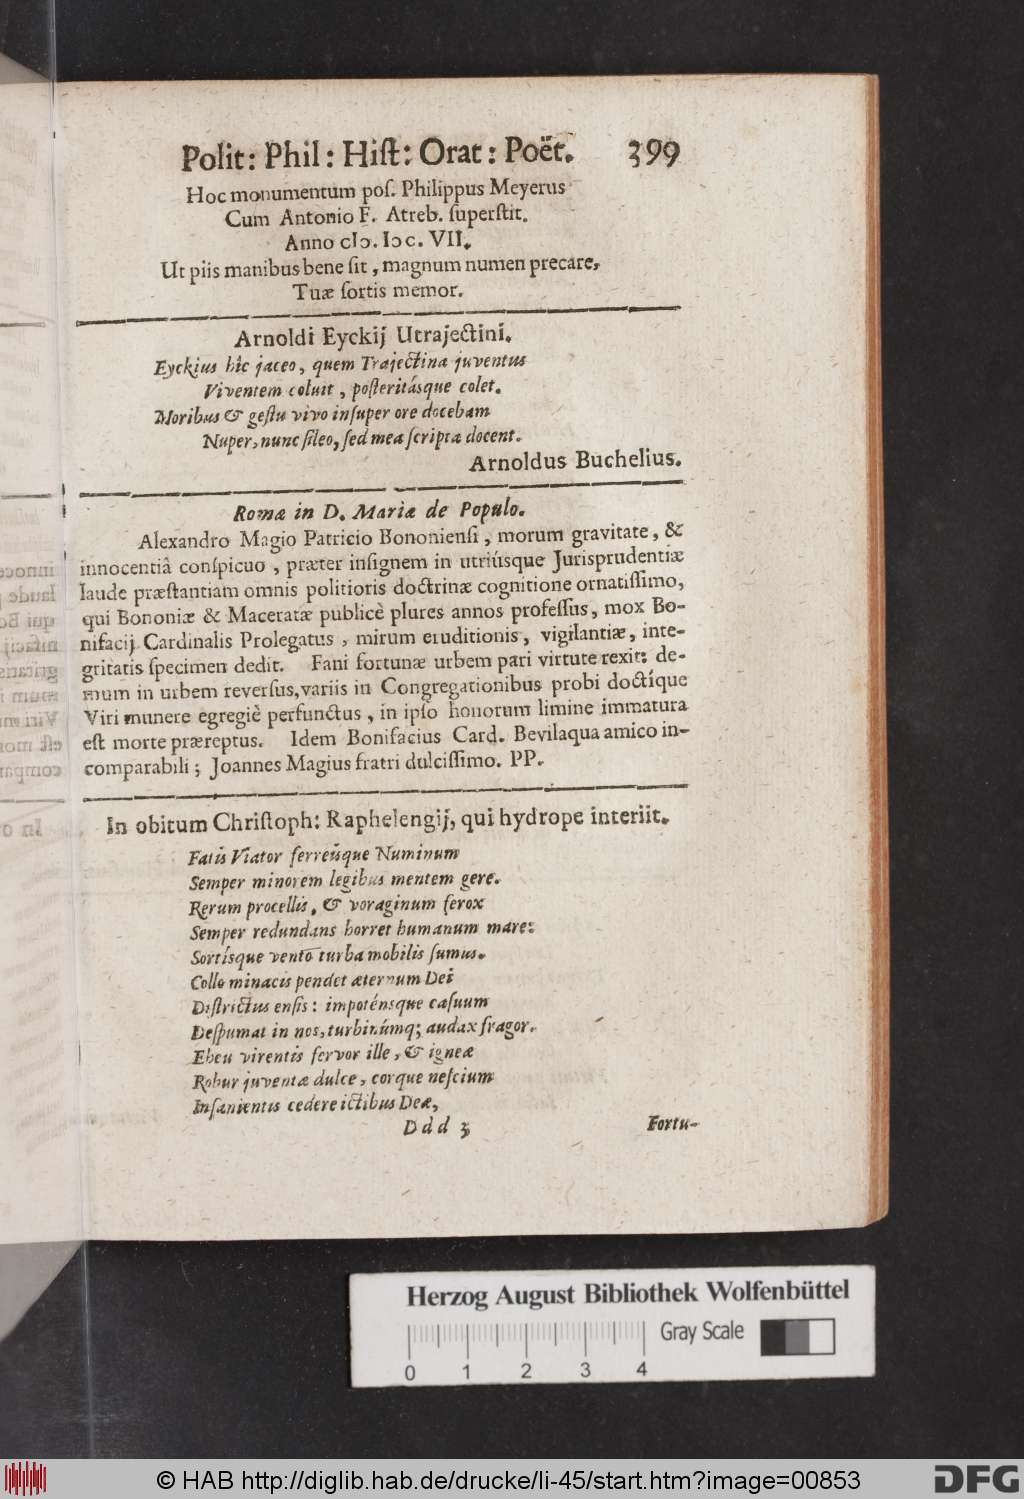 Polit: Phil: Hiſt: Orat: Poët. 399
Hoc monumentum poſ. Philippus Meyerus
Cum Antonio F. Atreb. ſuperſtit.
Anno cIↄ. Iↄc. VII.
Ut piis manibus bene ſit, magnum numen precare,
Tuæ ſortis memor.
Arnoldi Eyckij Utrajectini.
Eyckius hîc jaceo, quem Trajectina juventus
Viventem coluit, poſteritásque colet.
Moribus & geſtu vivo inſuper ore docebam
Nuper, nunc ſileo, ſed mea ſcripta docent.
Arnoldus Buchelius.
Romæ in D. Maria de Populo.
Alexandro Magio Patricio Bononienſi, morum gravitate, &
innocentiâ conſpicuo, præter inſignem in utriúsque Jurisprudentiæ
laude præſtantiam omnis politioris doctrinæ cognitione ornatiſſimo,
qui Bononiæ & Maceratæ publicè plures annos profeſſus, mox Bo-
nifacij Cardinalis Prolegatus, mirum eruditionis, vigilantiæ, inte-
gritatis ſpecimen dedit. Fani fortunæ urbem pari virtute rexit: de-
mum in urbem reverſus, variis in Congregationibus probi doctíque
Viri munere egregiè perfunctus, in ipſo honorum limine immatura
eſt morte præreptus. Idem Bonifacius Card. Bevilaqua amico in-
comparabili; Joannes Magius fratri dulciſſimo. PP.
In obitum Chriſtoph: Raphelengij, qui hydrope interiit.
Fatis Viator ferreísque Numinum
Semper minorem legibus mentem gere.
Rerum procellis, & voraginum ferox
Semper redundans horret humanum mare:
Sortísque vento turba mobilis ſumus.
Collo minacis pendet æternum Dei
Diſtrictus enſis: impoténsque caſuum
Deſpumat in nos, turbinúmq; audax fragor.
Eheu virentis fervor ille, & igneæ
Robur juventæ dulce, corque neſcium
Inſanientis cedere ictibus Deæ,
Ddd 3 Fortu-
Herzog August Bibliothek Wolfenbüttel
Gray Scale
0 1 2 3 4
© HAB http://diglib.hab.de/drucke/li-45/start.htm?image=00853
DFG